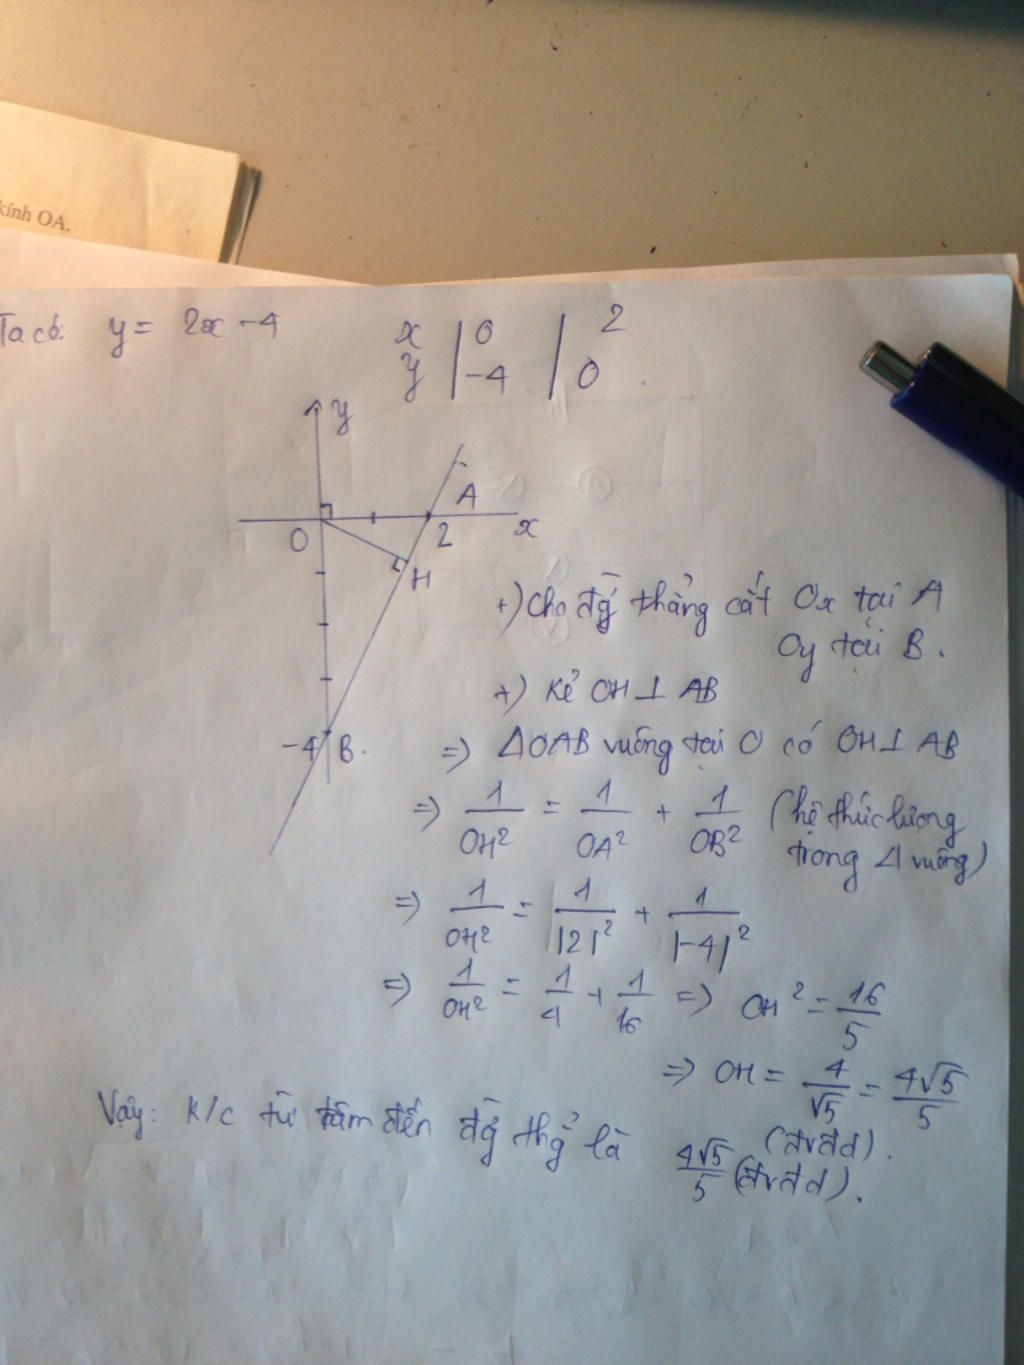 kính OA.
Ta có: y = 2x - 4
x | 0 | 2
y | -4 | 0
y
A
O 2 x
H
+) Cho đg̀ thẳng cắt Ox tại A
Oy tại B.
+) Kẻ OH ⊥ AB
-4 B.
=> ΔOAB vuông tại O có OH ⊥ AB
=> 1/OH² = 1/OA² + 1/OB² (hệ thức lượng
trong Δ vuông)
=> 1/OH² = 1/|2|² + 1/|-4|²
=> 1/OH² = 1/4 + 1/16 => OH² = 16/5
=> OH = 4/√5 = 4√5/5
(đvđd).
Vậy: k/c từ tâm đến đg̀ thg̉ là 4√5/5 (đvđd).